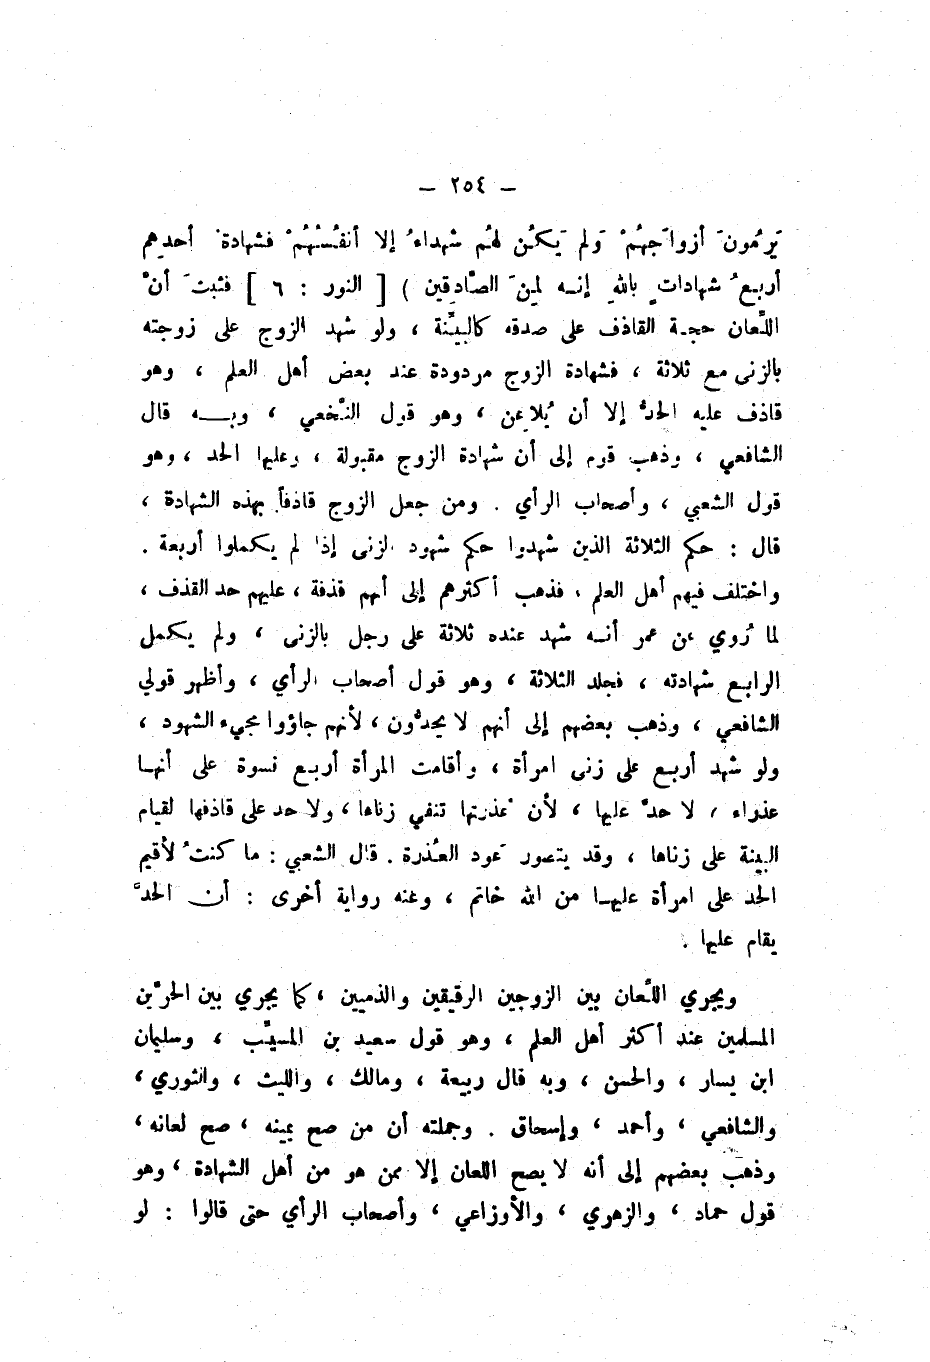 – ٢٥٤ –
يَرمُونَ أزواجَهُمْ وَلم يَكُن لهُم شهداءُ إلا أنفُسُهُمْ فشهادةُ أحدِهم
أربعُ شهاداتٍ باللهِ إنه لمِنَ الصَّادِقين ) [ النور : ٦ ] فثبتَ أنْ
اللِّعان حجة القاذف على صدقه كالبيِّنة ، ولو شهد الزوج على زوجته
بالزنى مع ثلاثة ، فشهادة الزوج مردودة عند بعض أهل العلم ، وهو
قاذف عليه الحدُّ إلا أن يُلاعِن ، وهو قول النَّخعي ، وبه قال
الشافعي ، وذهب قوم إلى أن شهادة الزوج مقبولة ، وعليها الحد ، وهو
قول الشعبي ، وأصحاب الرأي . ومن جعل الزوج قاذفاً بهذه الشهادة ،
قال : حكم الثلاثة الذين شهدوا حكم شهود الزنى إذا لم يكملوا أربعة .
واختلف فيهم أهل العلم ، فذهب أكثرهم إلى أنهم قذفة ، عليهم حد القذف ،
لما رُوي عن عمر أنه شهد عنده ثلاثة على رجل بالزنى ، ولم يكمل
الرابع شهادته ، فجلد الثلاثة ، وهو قول أصحاب الرأي ، وأظهر قولي
الشافعي ، وذهب بعضهم إلى أنهم لا يحدُّون ، لأنهم جاؤوا مجيء الشهود ،
ولو شهد أربع على زنى امرأة ، وأقامت المرأة أربع نسوة على أنها
عذراء ، لا حدَّ عليها ، لأن عُذرتها تنفي زناها ، ولا حد على قاذفها لقيام
البينة على زناها ، وقد يتصور عَود العُذرة . قال الشعبي : ما كنتُ لأقيم
الحد على امرأة عليها من الله خاتم ، وعنه رواية أخرى : أن الحدَّ
يقام عليها .
ويجري اللِّعان بين الزوجين الرقيقين والذميين ، كما يجري بين الحرَّين
المسلمين عند أكثر أهل العلم ، وهو قول سعيد بن المسيِّب ، وسليمان
ابن يسار ، والحسن ، وبه قال ربيعة ، ومالك ، والليث ، والثوري ،
والشافعي ، وأحمد ، وإسحاق . وجملته أن من صح يمينه ، صح لعانه ،
وذهب بعضهم إلى أنه لا يصح اللعان إلا ممن هو من أهل الشهادة ، وهو
قول حماد ، والزهري ، والأوزاعي ، وأصحاب الرأي حتى قالوا : لو